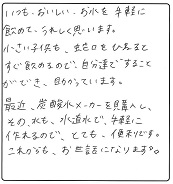 いつも、おいしい、お水を手軽に
飲めて、うれしく思います。
小さい子供も、蛇口をひねると
すぐ飲めるので、自分達でする こと
ができ、助かっています。
最近、炭酸水メーカーを購入し、
その、水も、水道水で、手軽に
作れるので、とても、便利です。
これからも、お世話になります。